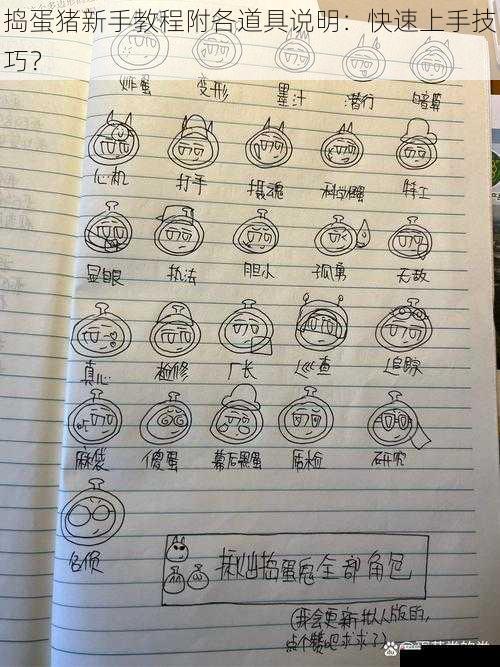 捣蛋猪新手教程附各道具说明：快速上手技
巧？
炸蛋 变形 墨汁 潜行 暗算
心机 打手 摄魂 科学怪蛋 特工
显眼 执法 胆小 孤勇 无敌
真心 检修 厂长 巡查 追踪
麻袋 傻蛋 幕后黑蛋 质检 研究
名侦
揪出捣蛋鬼全部角色
(我会更新拟人版的,
点个赞吧求求了)